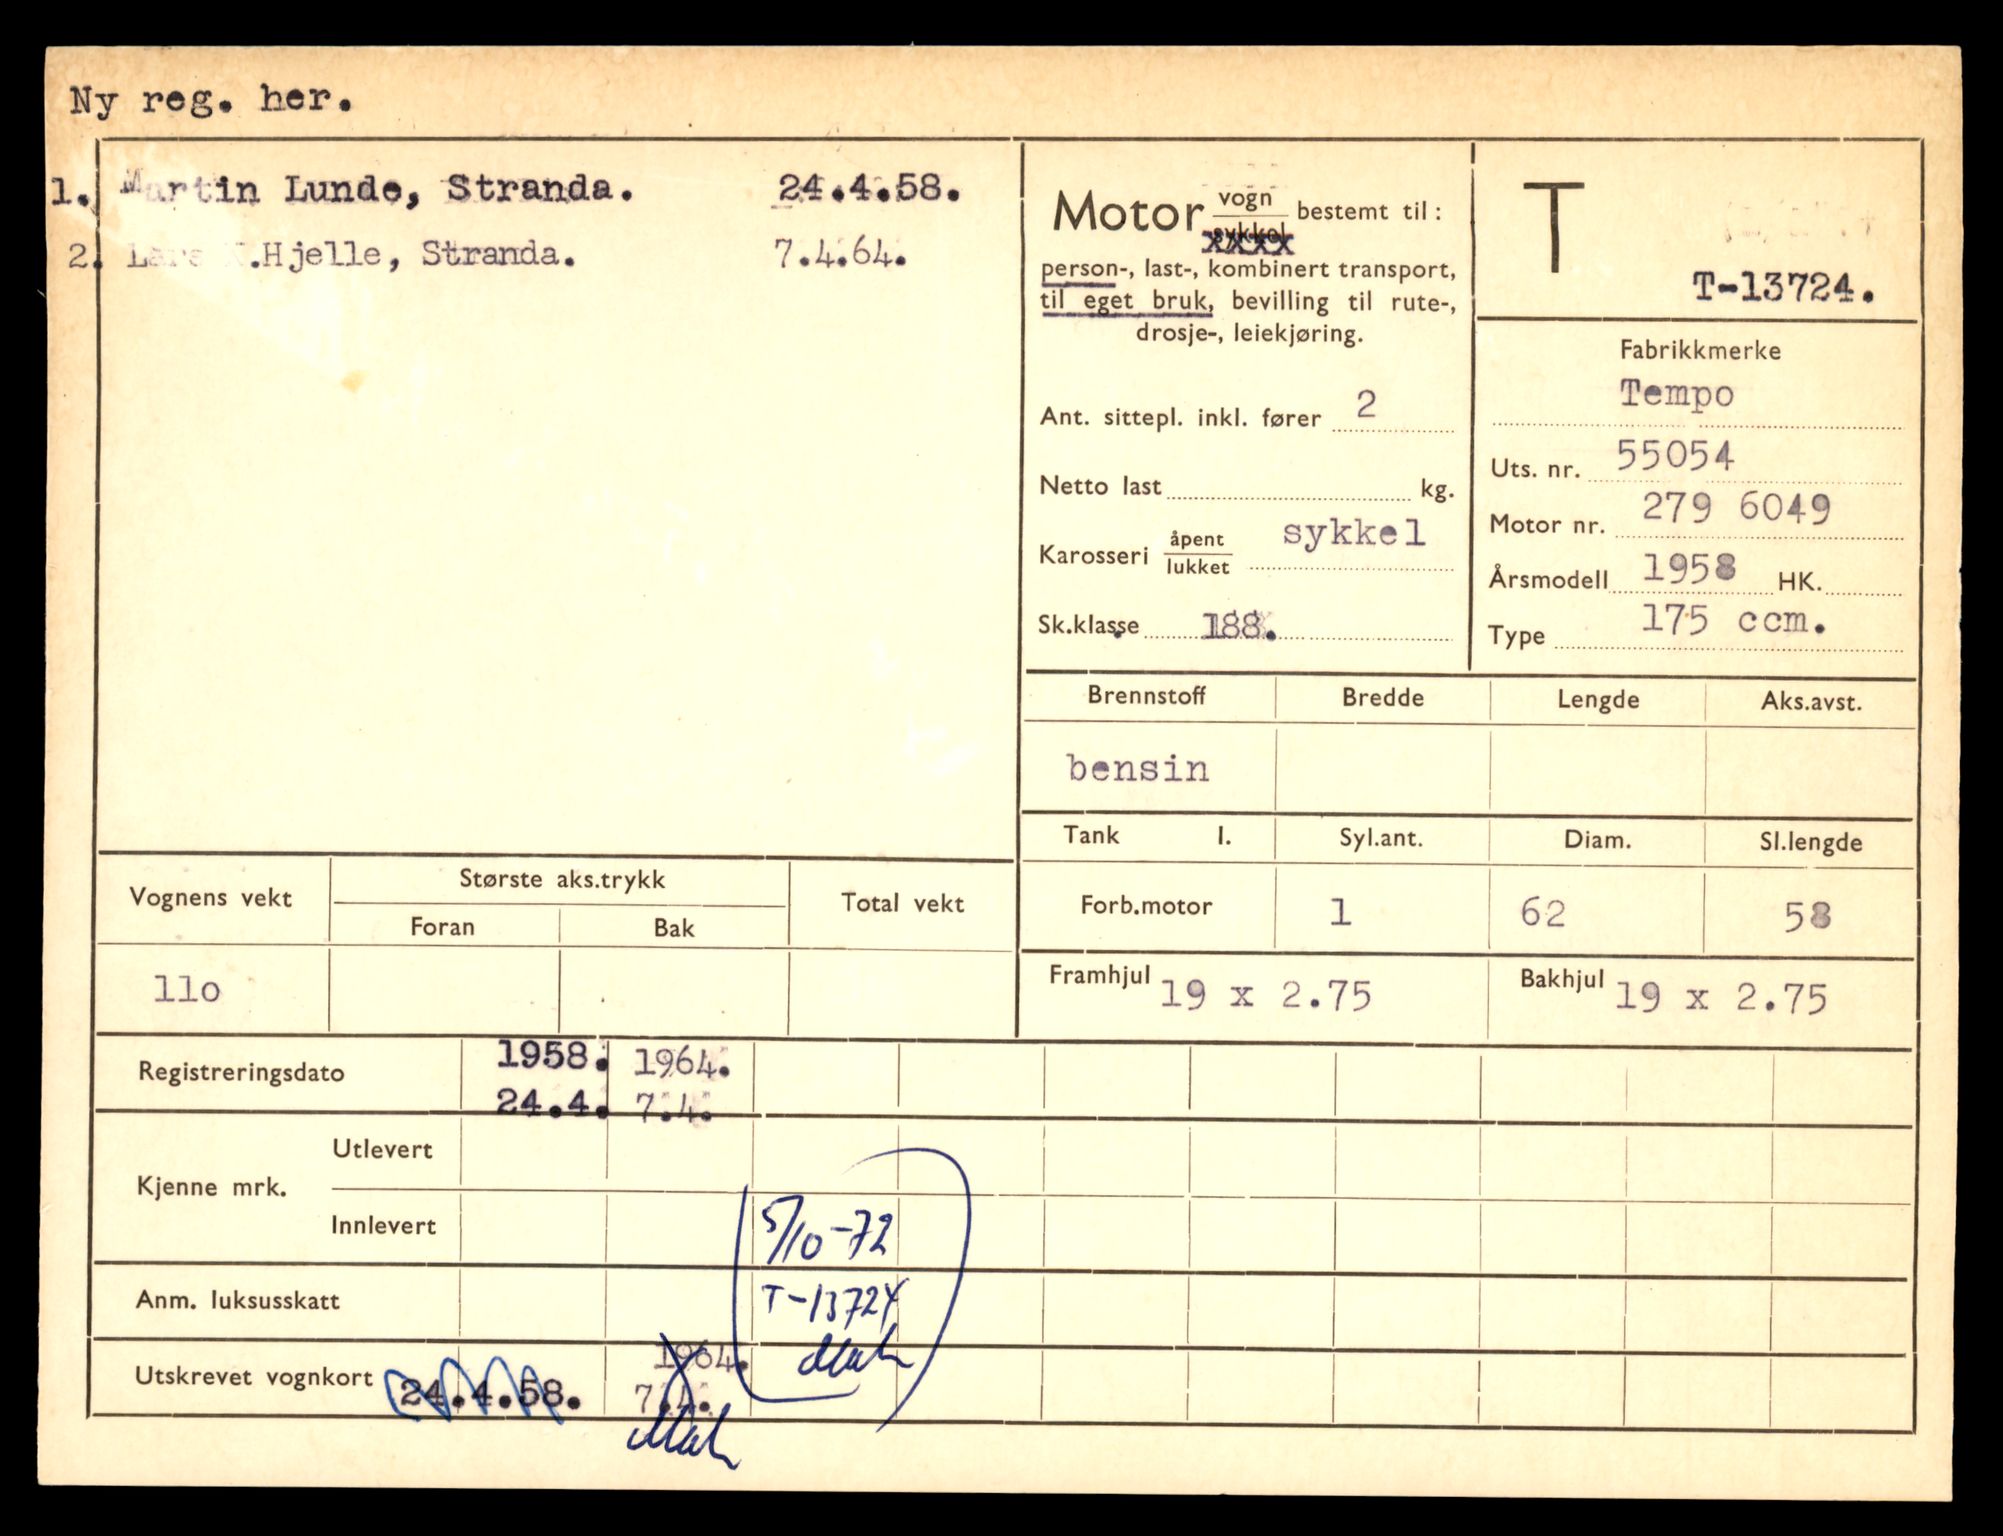 Ny reg. her.
1. Martin Lunde, Stranda. 24.4.58.
2. Lars .Hjelle, Stranda. 7.4.64.
Motor vogn / sykkel bestemt til:
person-, last-, kombinert transport,
til eget bruk, bevilling til rute-,
drosje-, leiekjøring.
Ant. sittepl. inkl. fører 2
Netto last kg.
Karosseri åpent / lukket sykkel
Sk.klasse 188.
T
T-13724.
Fabrikkmerke
Tempo
Uts. nr. 55054
Motor nr. 279 6049
Årsmodell 1958 HK.
Type 175 ccm.
Brennstoff Bredde Lengde Aks.avst.
bensin
Tank l. Syl.ant. Diam. Sl.lengde
Forb.motor 1 62 58
Framhjul 19 x 2.75 Bakhjul 19 x 2.75
Vognens vekt Største aks.trykk Total vekt
Foran Bak
110
Registreringsdato 1958. 1964.
24.4. 7.4.
Kjenne mrk. Utlevert
Innlevert 5/10-72
Anm. luksusskatt T-13724
Utskrevet vognkort 24.4.58. 1964.
7.4.